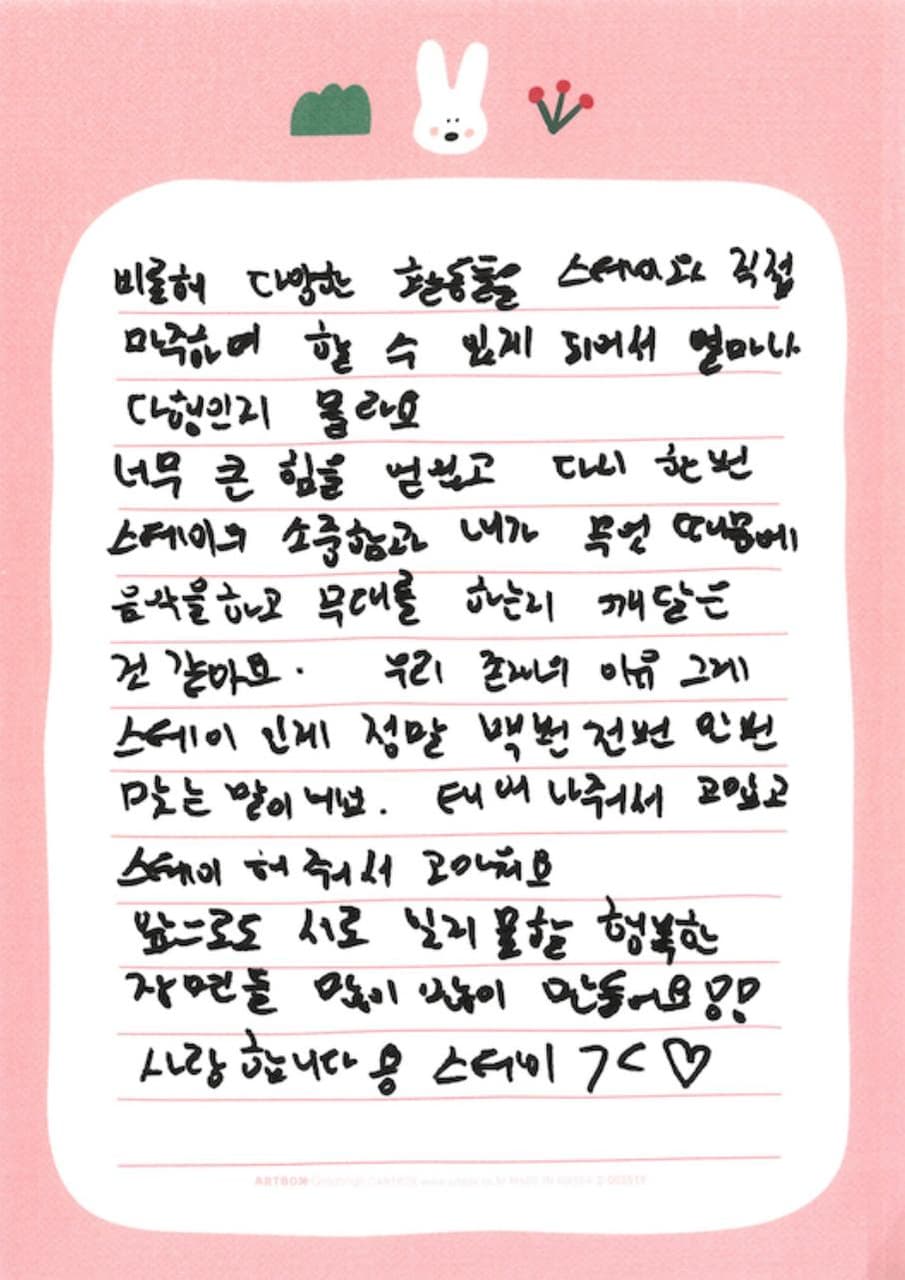 비롯해 다양한 활동들을 스테이와 직접
마주하며 할 수 있게 되어서 얼마나
다행인지 몰라요
너무 큰 힘을 얻었고 다시 한번
스테이의 소중함과 내가 무엇 때문에
음악을 하고 무대를 하는지 깨달은
건 같아요. 우리 존재의 이유 그게
스테이 인게 정말 백번 천번 만번
맞는 말이네요. 태어나줘서 고맙고
스테이 해줘서 고마워요
앞으로도 서로 잊지 못할 행복한
장면들 많이 많이 만들어요!!
사랑합니다용 스테이 ><♡
ARTBOX